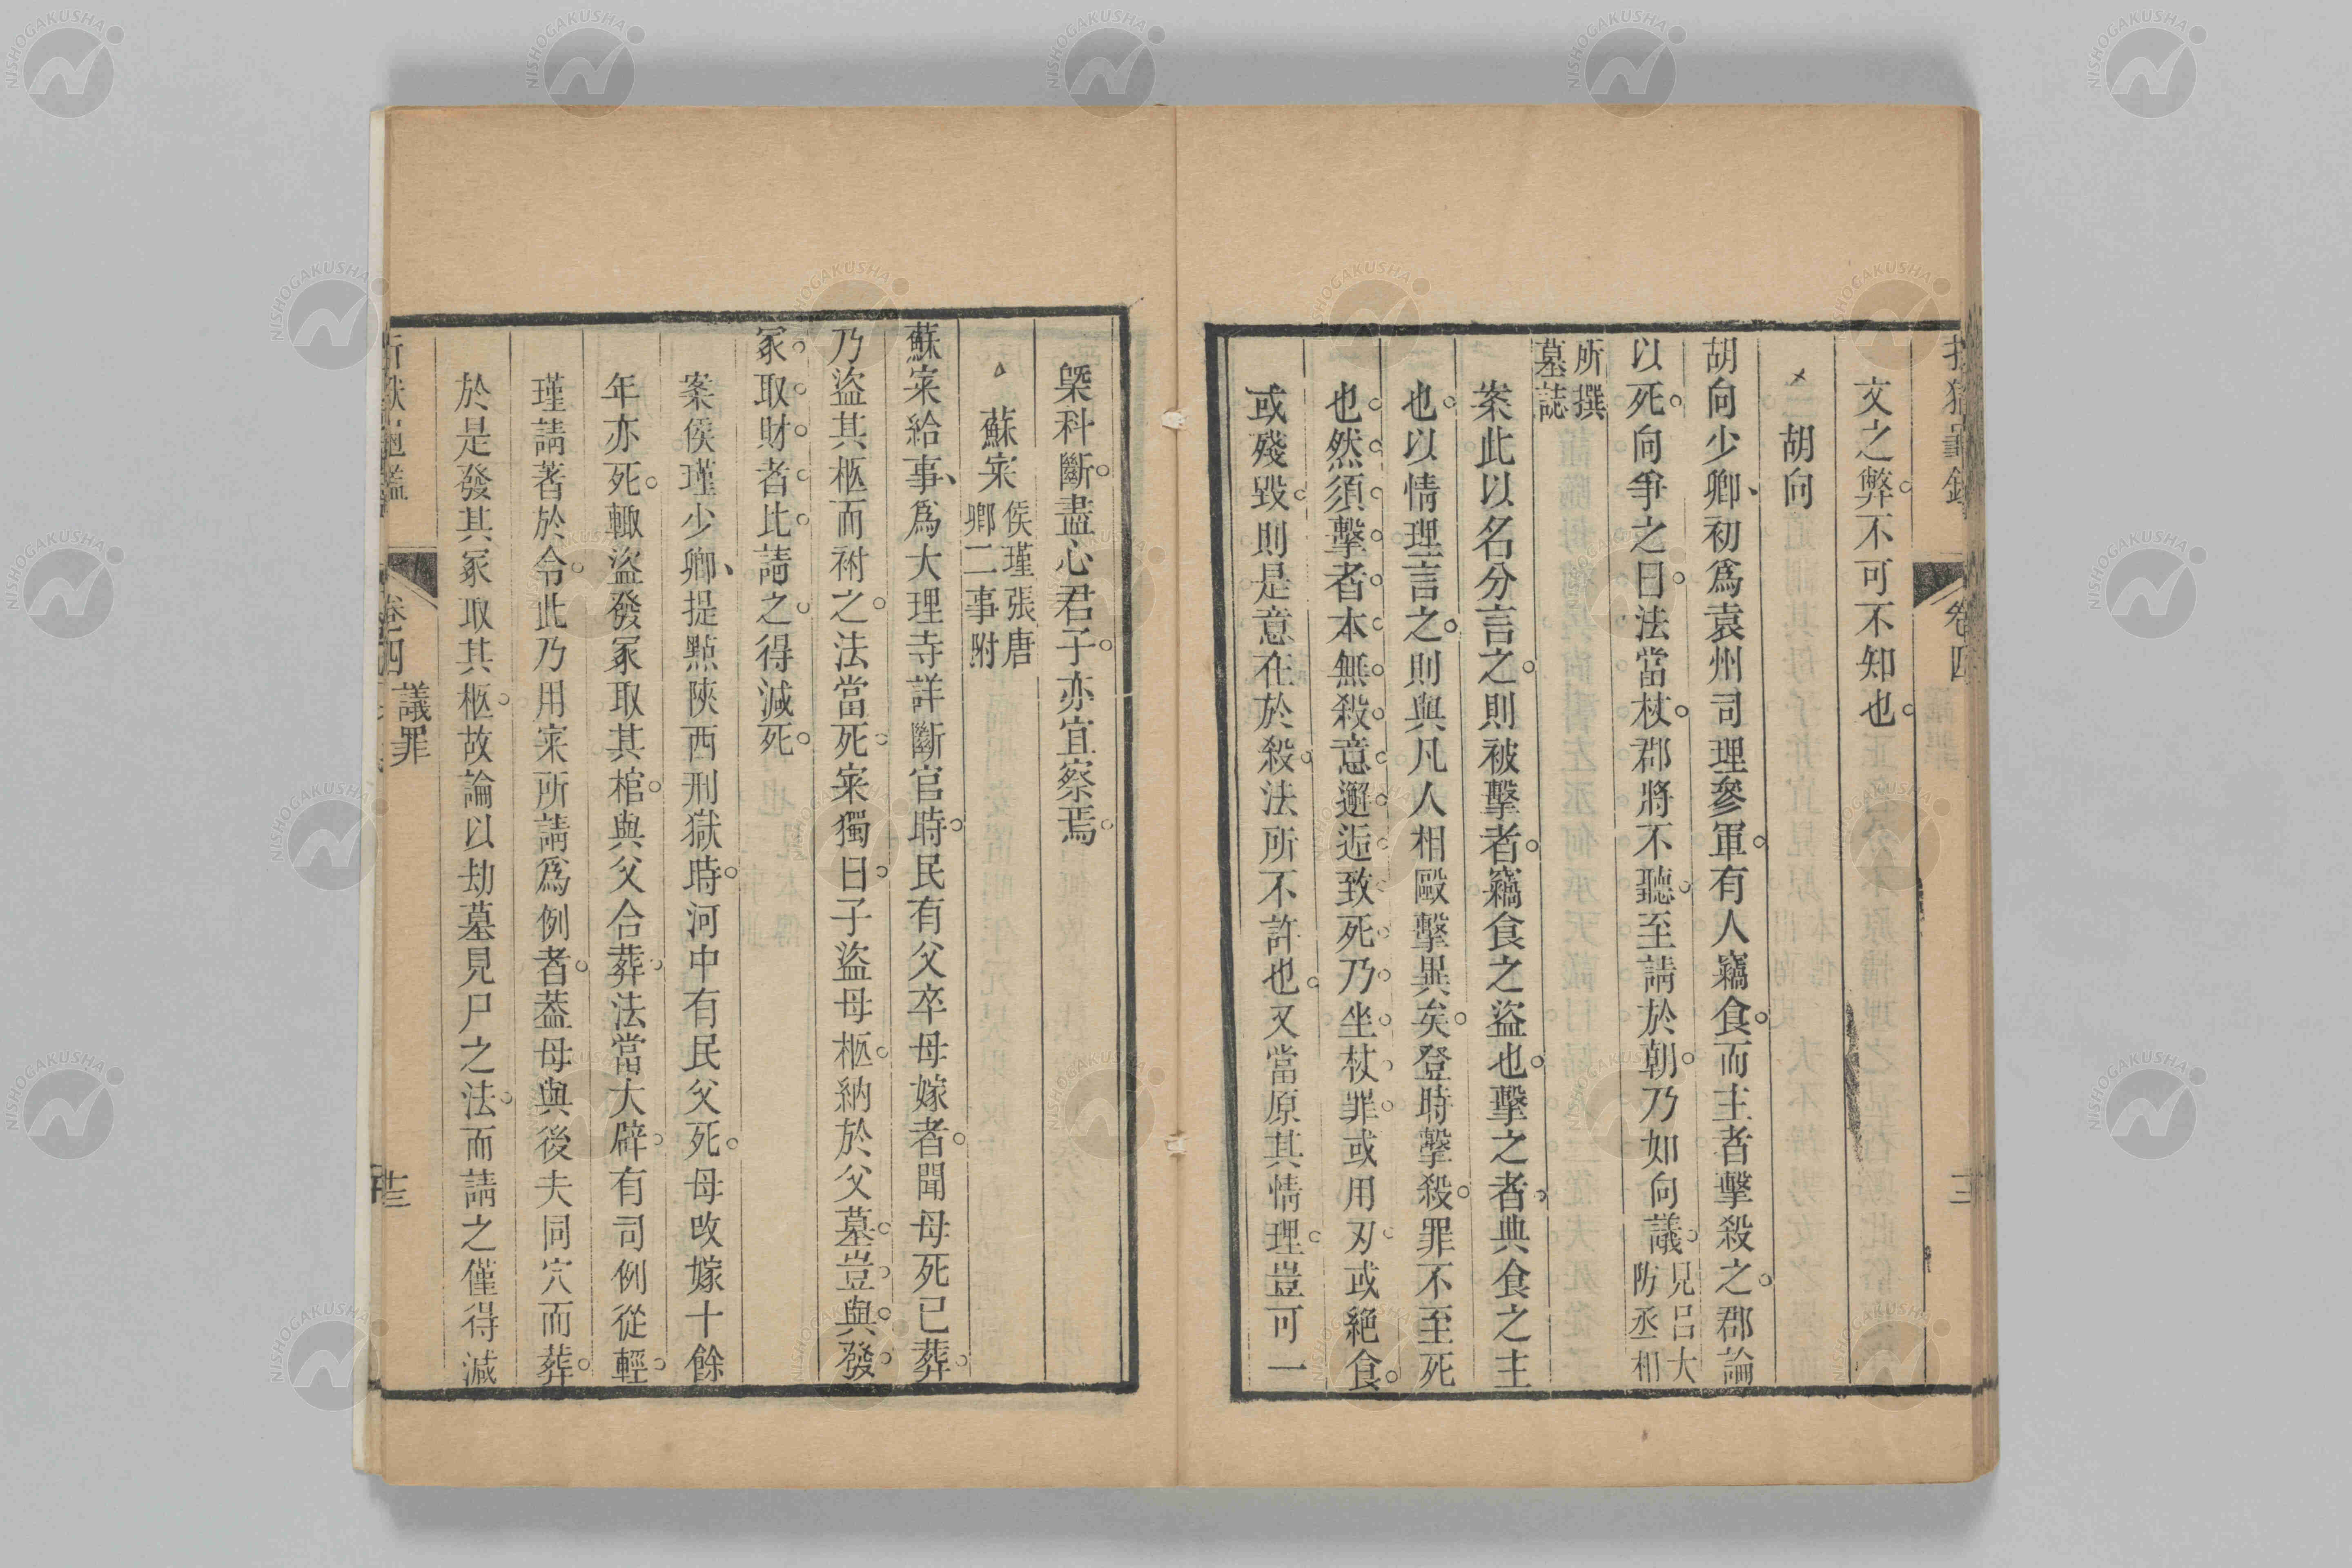 文之弊不可不知也
胡向
胡向少卿初爲袁州司理參軍有人竊食而主者擊殺之郡論
以死向爭之曰法當杖郡將不聽至請於朝乃如向議見呂大防丞相
所撰墓誌
案此以名分言之則被擊者竊食之盜也擊之者典食之主
也以情理言之則與凡人相毆擊異矣登時擊殺罪不至死
也然須擊者本無殺意邂逅致死乃坐杖罪或用刃或絕食
或殘毀則是意在於殺法所不許也又當原其情理豈可一
卷四
槩科斷盡心君子亦宜察焉
蘇寀侯瑾張唐卿二事附
蘇寀給事爲大理寺詳斷官時民有父卒母嫁者聞母死已葬
乃盜其柩而祔之法當死寀獨曰子盜母柩納於父墓豈與發
冢取財者比請之得減死
案侯瑾少卿提點陝西刑獄時河中有民父死母改嫁十餘
年亦死輒盜發冢取其棺與父合葬法當大辟有司例從輕
瑾請著於令此乃用寀所請爲例者葢母與後夫同穴而葬
於是發其冢取其柩故論以劫墓見尸之法而請之僅得減
卷四 議罪
NISHOGAKUSHA